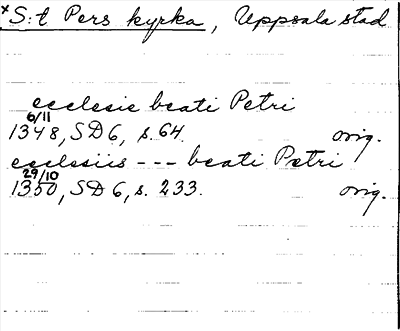 x S:t Pers kyrka, Uppsala stad
ecclesie beati Petri
6/11
1348, SD 6, s. 64. orig.
ecclesiis --- beati Petri
29/10
1350, SD 6, s. 233. orig.